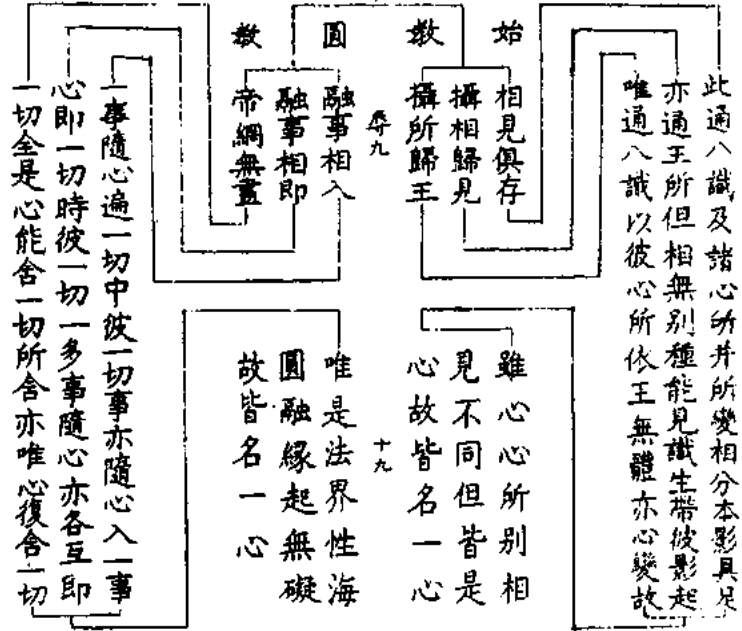 始教
相見俱存
攝相歸見
攝所歸王
此通八識及諸心所并所變相分本影具足
亦通王所但相無別種能見識生帶彼影起
唯通八識以彼心所依王無體亦心變故
雖心心所別相
見不同但皆是
心故皆名一心
卷九
十九
圓教
融事相入
融事相即
帝網無盡
一事隨心遍一切中彼一切事亦隨心入一事
心即一切時彼一切一多事隨心亦各互即
一切全是心能含一切所含亦唯心復含一切
唯是法界性海
圓融緣起無礙
故皆名一心